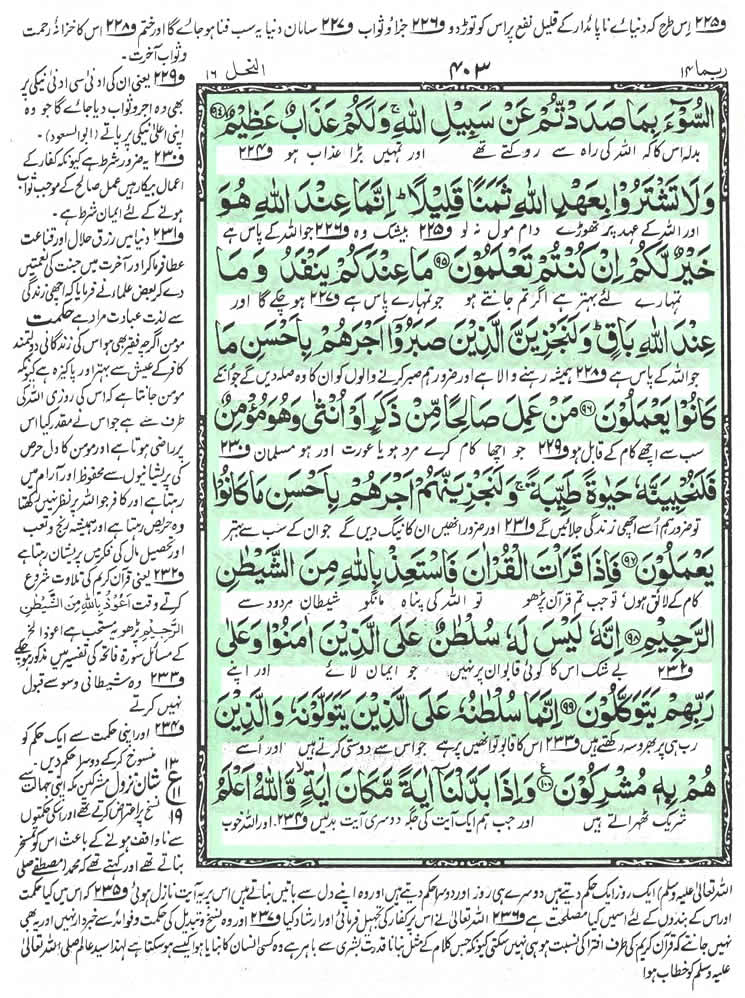 و۲۲۵ اس طرح کہ دنیائے ناپائدار کے قلیل نفع پر اس کو توڑ دو و۲۲۶ جزا و ثواب و۲۲۷ سامان دنیا یہ سب فنا ہو جائے گا اور ختم و۲۲۸ اس کا خزانۂ رحمت
و ثواب آخرت۔
ربما ۱۴
۴۰۳
النحل ۱۶
السُّوْٓءَ بِمَا صَدَدْتُّمْ عَنْ سَبِیْلِ اللّٰهِ ۚ وَلَكُمْ عَذَابٌ عَظِیْمٌ ﴿۹۴﴾
بدلہ اس کا کہ اللہ کی راہ سے روکتے تھے اور تمہیں بڑا عذاب ہو و۲۲۴
وَلَا تَشْتَرُوْا بِعَهْدِ اللّٰهِ ثَمَنًا قَلِیْلًا ؕ اِنَّمَا عِنْدَ اللّٰهِ هُوَ
اور اللہ کے عہد پر تھوڑے دام مول نہ لو و۲۲۵ بیشک وہ و۲۲۶ جو اللہ کے پاس ہے
خَیْرٌ لَّكُمْ اِنْ كُنْتُمْ تَعْلَمُوْنَ ﴿۹۵﴾ مَا عِنْدَكُمْ یَنْفَدُ وَمَا
تمہارے لئے بہتر ہے اگر تم جانتے ہو جو تمہارے پاس ہے و۲۲۷ ہو چکے گا اور
عِنْدَ اللّٰهِ بَاقٍ ؕ وَلَنَجْزِیَنَّ الَّذِیْنَ صَبَرُوْٓا اَجْرَهُمْ بِاَحْسَنِ مَا
جو اللہ کے پاس ہے و۲۲۸ ہمیشہ رہنے والا ہے اور ضرور ہم صبر کرنے والوں کو ان کا وہ صلہ دیں گے جو انکے
كَانُوْا یَعْمَلُوْنَ ﴿۹۶﴾ مَنْ عَمِلَ صَالِحًا مِّنْ ذَكَرٍ اَوْ اُنْثٰی وَهُوَ مُؤْمِنٌ
سب سے اچھے کام کے قابل ہو و۲۲۹ جو اچھا کام کرے مرد ہو یا عورت اور ہو مسلمان و۲۳۰
فَلَنُحْیِیَنَّهٗ حَیٰوةً طَیِّبَةً ۚ وَلَنَجْزِیَنَّهُمْ اَجْرَهُمْ بِاَحْسَنِ مَا كَانُوْا
تو ضرور ہم اسے اچھی زندگی جلائیں گے و۲۳۱ اور ضرور انھیں ان کا نیگ دیں گے جو ان کے سب سے بہتر
یَعْمَلُوْنَ ﴿۹۷﴾ فَاِذَا قَرَاْتَ الْقُرْاٰنَ فَاسْتَعِذْ بِاللّٰهِ مِنَ الشَّیْطٰنِ
کام کے لائق ہوں، تو جب تم قرآن پڑھو تو اللہ کی پناہ مانگو شیطان مردود سے
الرَّجِیْمِ ﴿۹۸﴾ اِنَّهٗ لَیْسَ لَهٗ سُلْطٰنٌ عَلَی الَّذِیْنَ اٰمَنُوْا وَعَلٰی
و۲۳۲ بے شک اس کا کوئی قابو ان پر نہیں جو ایمان لائے اور اپنے
رَبِّهِمْ یَتَوَكَّلُوْنَ ﴿۹۹﴾ اِنَّمَا سُلْطٰنُهٗ عَلَی الَّذِیْنَ یَتَوَلَّوْنَهٗ وَالَّذِیْنَ
رب ہی پر بھروسہ رکھتے ہیں و۲۳۳ اس کا قابو تو انھیں پر ہے جو اس سے دوستی کرتے ہیں اور اسے
هُمْ بِهٖ مُشْرِكُوْنَ ﴿۱۰۰﴾ ع وَاِذَا بَدَّلْنَآ اٰیَةً مَّكَانَ اٰیَةٍ ۙ وَّاللّٰهُ اَعْلَمُ
شریک ٹھہراتے ہیں اور جب ہم ایک آیت کی جگہ دوسری آیت بدلیں و۲۳۴ اور اللہ خوب
و۲۲۹ یعنی ان کی ادنیٰ سی ادنیٰ نیکی پر
بھی وہ اجر و ثواب دیا جائے گا جو وہ
اپنی اعلیٰ نیکی پر پاتے (ابوالسعود)۔
و۲۳۰ یہ ضرور شرط ہے کیونکہ کفار کے
اعمال بیکار ہیں عمل صالح کے موجب ثواب
ہونے کے لئے ایمان شرط ہے۔
و۲۳۱ دنیا میں رزق حلال اور قناعت
عطا فرما کر اور آخرت میں جنت کی نعمتیں
دے کر بعض علماء نے فرمایا کہ اچھی زندگی
سے لذت عبادت مراد ہے حکمت
مومن اگرچہ فقیر بھی ہو اس کی زندگانی دولتمند
کافر کے عیش سے بہتر اور پاکیزہ ہے کیونکہ
مومن جانتا ہے کہ اس کی روزی اللہ کی
طرف سے ہے جو اس نے مقدر کیا اس
پر راضی ہوتا ہے اور مومن کا دل حرص
کی پریشانیوں سے محفوظ اور آرام میں
رہتا ہے اور کافر جو اللہ پر نظر نہیں رکھتا
وہ حریص رہتا ہے اور ہمیشہ رنج و تعب
اور تحصیل مال کی فکر میں پریشان رہتا ہے
و۲۳۲ یعنی قرآن کریم کی تلاوت شروع
کرتے وقت اَعُوْذُ بِاللّٰهِ مِنَ الشَّیْطٰنِ
الرَّجِیْمِ پڑھو یہ مستحب ہے اعوذ الخ
کے مسائل سورۂ فاتحہ کی تفسیر میں مذکور ہو چکے
و۲۳۳ وہ شیطانی وسوسے قبول
نہیں کرتے
و۲۳۴ اور اپنی حکمت سے ایک حکم کو
منسوخ کرکے دوسرا حکم دیں۔
۱۳ ع ۱۱ ۱۹
شان نزول مشرکین مکہ اپنی جہالت سے
نسخ پر اعتراض کرتے تھے اور اسکی حکمتوں
سے ناواقف ہونے کے باعث اس کو تمسخر
بناتے تھے اور کہتے تھے کہ محمد (مصطفےٰ صلی
اللہ تعالیٰ علیہ وسلم) ایک روز ایک حکم دیتے ہیں دوسرے ہی روز اور دوسرا حکم دیتے ہیں اور وہ اپنے دل سے باتیں بناتے ہیں اس پر یہ آیت نازل ہوئی و۲۳۵ کہ اس میں کیا حکمت
اور اس کے بندوں کے لئے اسمیں کیا مصلحت ہے و۲۳۶ اللہ تعالیٰ نے اس پر کفار کی تجہیل فرمائی اور ارشاد کیا و۲۳۷ اور وہ نسخ و تبدیل کی حکمت و فوائد سے خبردار نہیں اور یہ بھی
نہیں جانتے کہ قرآن کریم کی طرف افترا کی نسبت ہو ہی نہیں سکتی کیونکہ جس کلام کے مثل بنانا قدرت بشری سے باہر ہے وہ کسی انسان کا بنایا ہوا کیسے ہو سکتا ہے لہٰذا سید عالم صلی اللہ تعالیٰ
علیہ وسلم کو خطاب ہوا